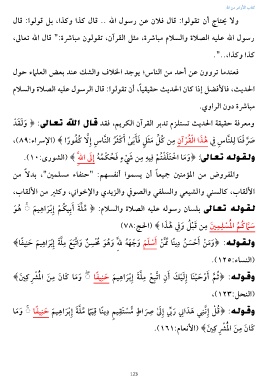 كتاب الأثر من الله
ولا تحتاج أن تقولوا: قال فلان عن رسول الله .. قال كذا وكذا، بل قولوا: قال
رسول الله عليه الصلاة والسلام مباشرة، مثل القرآن، تقولون مباشرة:" قال الله تعالى،
كذا وكذا،..".
فعندما تروون عن أحد من الناس؛ يوجد الخلاف والشك عند بعض العلماء حول
الحديث، فالأفضل إذا كان الحديث حقيقياً، أن تقولوا: قال الرسول عليه الصلاة والسلام
مباشرة دون الراوي.
ومعرفة حقيقة الحديث تستلزم تدبر القرآن الكريم، فقد قال الله تعالى: ﴿ وَلَقَدْ
صَرَّفْنَا لِلنَّاسِ فِي هَٰذَا الْقُرْآنِ مِن كُلِّ مَثَلٍ فَأَبَىٰ أَكْثَرُ النَّاسِ إِلَّا كُفُورًا ﴾ (الإسراء:٨٩)،
ولقوله تعالى: ﴿وَمَا اخْتَلَفْتُمْ فِيهِ مِن شَيْءٍ فَحُكْمُهُ إِلَى اللَّهِ ﴾ (الشورى:١٠).
والمفروض من المؤمنين جميعاً أن يسموا أنفسهم: "حنفاء مسلمين"، بدلاً من
الألقاب، كالسني والشيعي والسلفي والصوفي والزيدي والإخواني، وكثير من الألقاب،
لقوله تعالى بلسان رسوله عليه الصلاة والسلام: ﴿ مِّلَّةَ أَبِيكُمْ إِبْرَاهِيمَ ۚ هُوَ
سَمَّاكُمُ الْمُسْلِمِينَ مِن قَبْلُ وَفِي هَٰذَا ﴾ (الحج:٧٨)
ولقوله: ﴿وَمَنْ أَحْسَنُ دِينًا مِّمَّنْ أَسْلَمَ وَجْهَهُ لِلَّهِ وَهُوَ مُحْسِنٌ وَاتَّبَعَ مِلَّةَ إِبْرَاهِيمَ حَنِيفًا﴾
(النساء:١٢٥).
وقوله: ﴿ثُمَّ أَوْحَيْنَا إِلَيْكَ أَنِ اتَّبِعْ مِلَّةَ إِبْرَاهِيمَ حَنِيفًا ۖ وَمَا كَانَ مِنَ الْمُشْرِكِينَ﴾
(النحل:١٢٣)،
وقوله: ﴿قُلْ إِنَّنِي هَدَانِي رَبِّي إِلَىٰ صِرَاطٍ مُّسْتَقِيمٍ دِينًا قِيَمًا مِّلَّةَ إِبْرَاهِيمَ حَنِيفًا ۚ وَمَا
كَانَ مِنَ الْمُشْرِكِينَ﴾ (الأنعام:١٦١).